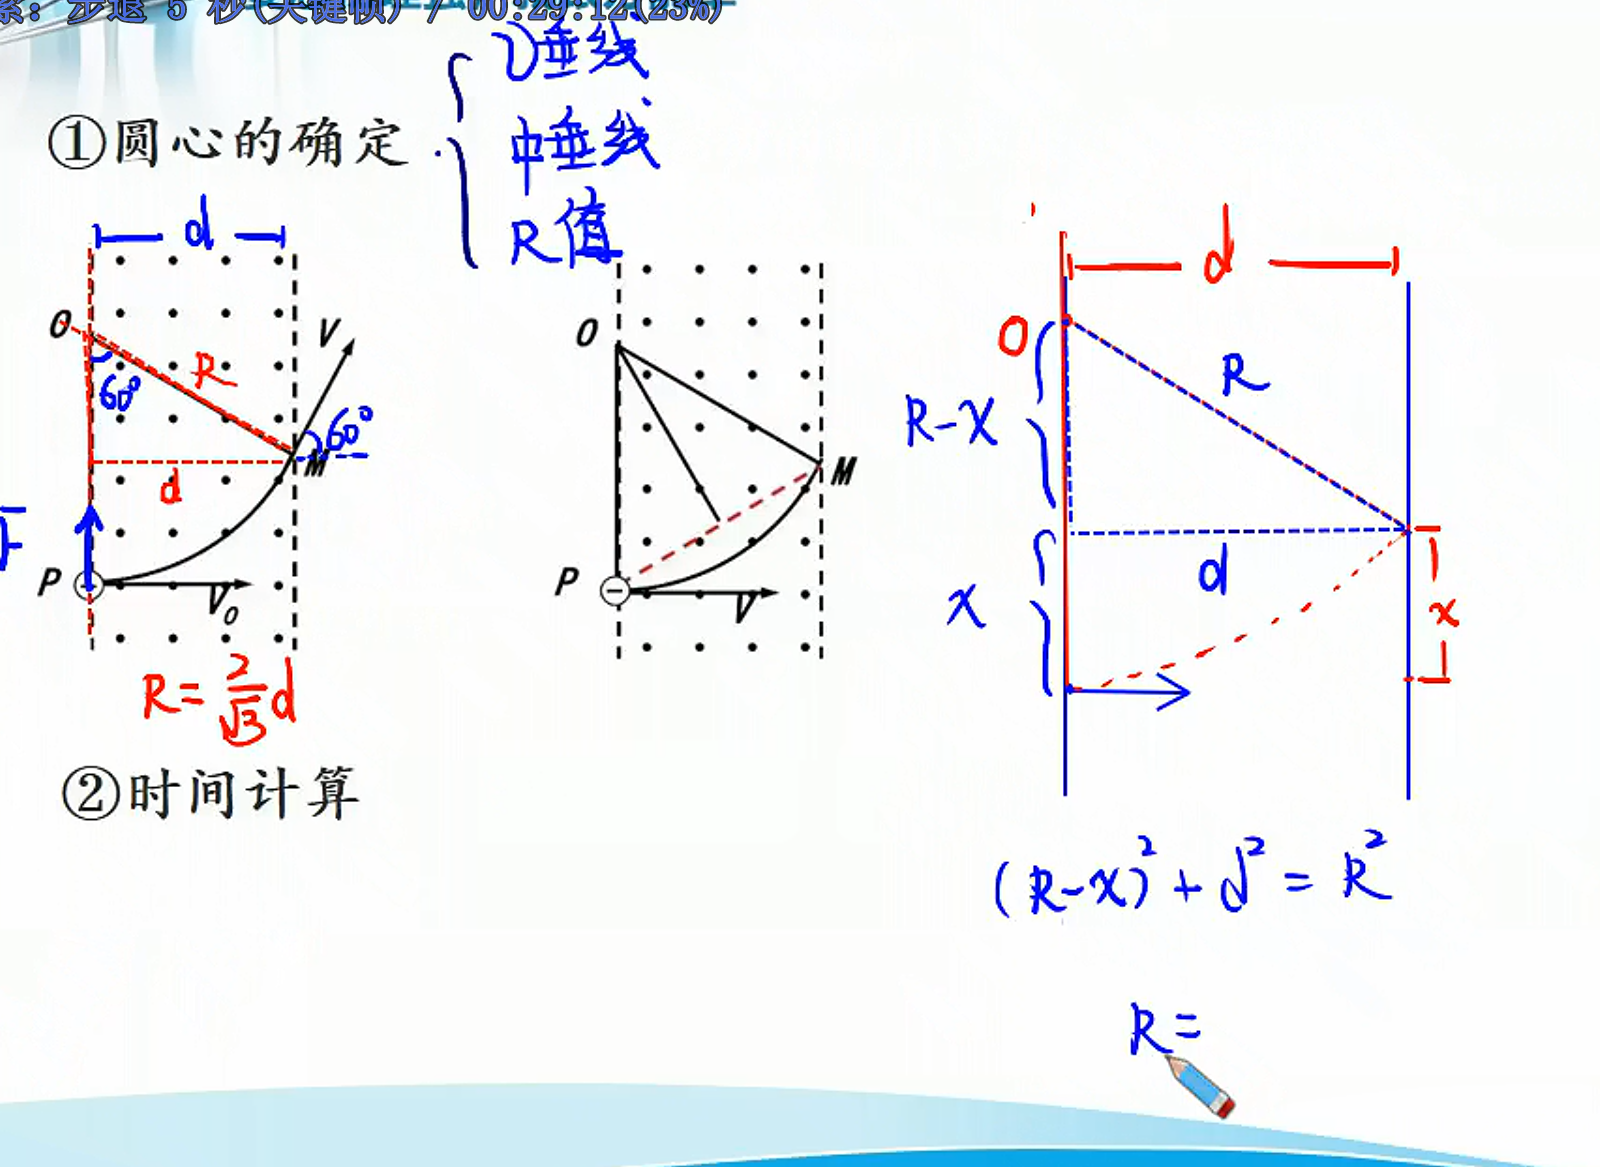 系: 步退 5 秒(关键帧) / 00:29:12(23%)
①圆心的确定
V垂线
中垂线
R值
d
O
R
60°
V
60°
M
d
F
P
V₀
R=2/√3 d
O
M
P
V
d
O
R-x
R
d
x
x
②时间计算
(R-x)²+d²=R²
R=